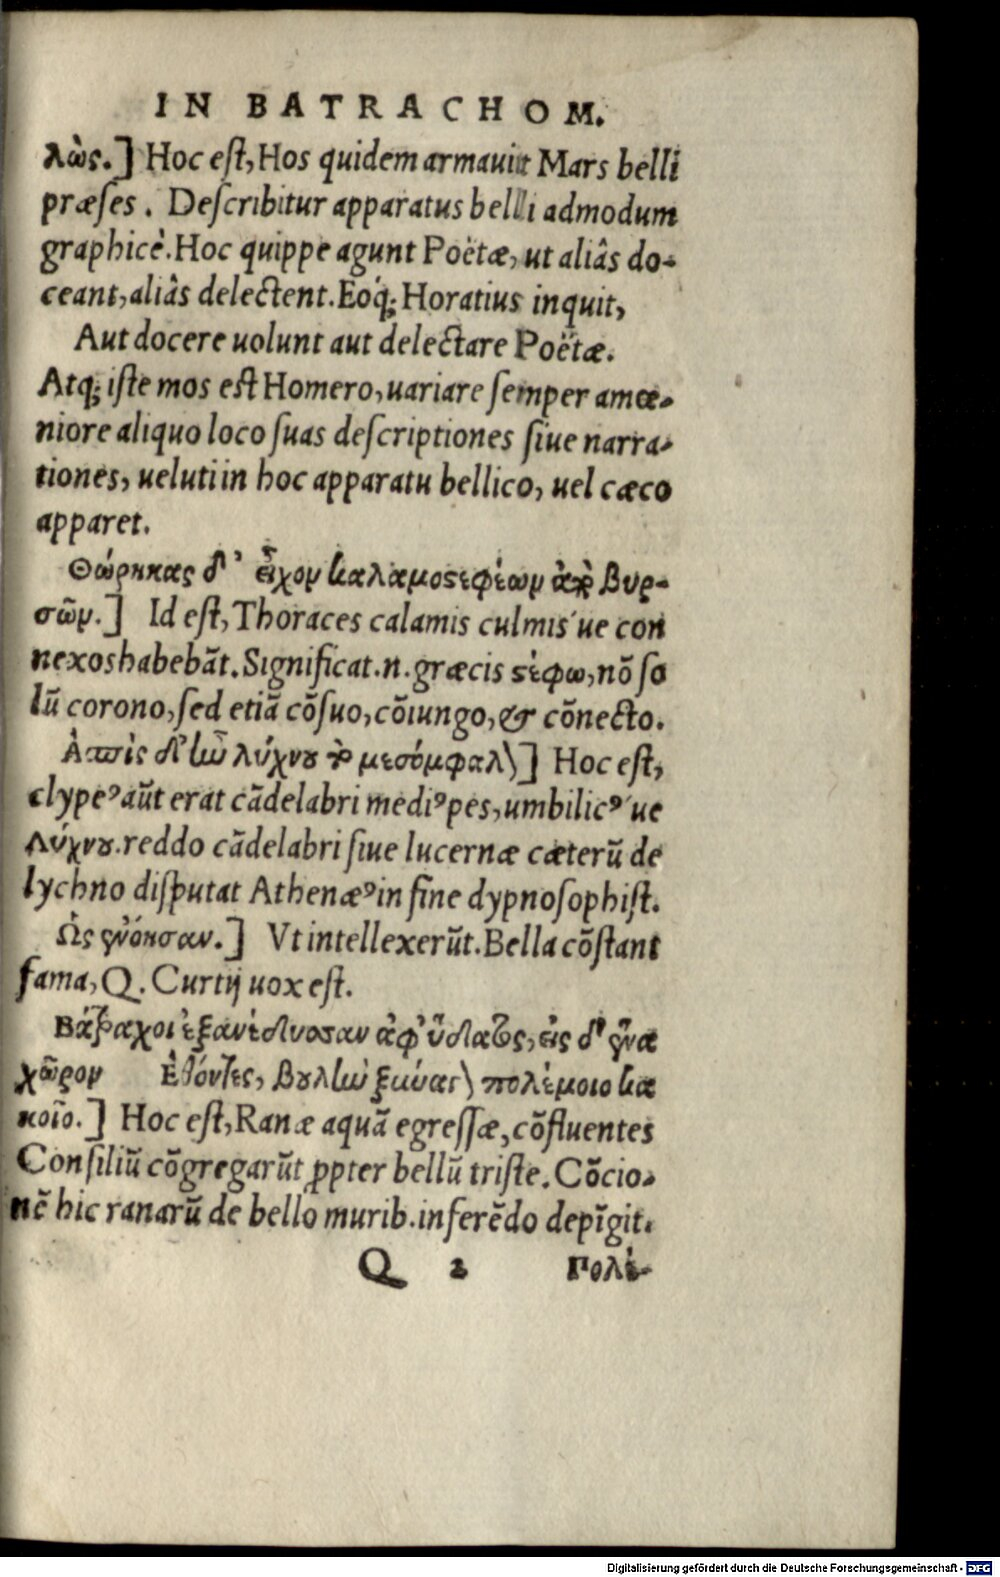 IN BATRACHOM.
λὼς.] Hoc eſt, Hos quidem armauit Mars belli
præſes. Deſcribitur apparatus belli admodum
graphicè. Hoc quippe agunt Poëtæ, ut aliâs do-
ceant, aliâs delectent. Eoq́; Horatius inquit,
Aut docere uolunt aut delectare Poëtæ.
Atq; iſte mos eſt Homero, uariare ſemper amœ-
niore aliquo loco ſuas deſcriptiones ſiue narra-
tiones, ueluti in hoc apparatu bellico, uel cæco
apparet.
Θώρηκας δ' εἶχον καλαμοϛεφέων ἀπὸ βυρ-
σῶν.] Id eſt, Thoraces calamis culmis'ue con
nexos habebãt. Significat .n. græcis ϛέφω, nõ ſo
lũ corono, ſed etiã cõſuo, cõiungo, & cõnecto.
Ἀσπὶς δ' ἰῶ λύχνου τὸ μεσόμφαλ] Hoc eſt,
clypeꝰ aũt erat cãdelabri mediꝰ pes, umbilicꝰ'ue
Λύχνου. reddo cãdelabri ſiue lucernæ cæterũ de
lychno diſputat Athenæꝰ in fine dypnoſophiſt.
Ὡς ἐνόησαν.] Vt intellexerũt. Bella cõſtant
fama, Q. Curtij uox eſt.
Βάτραχοι ἐξανέδυσαν ἀφ' ὕδατος, εἰς δ' ἕνα
χῶρον Ἐλθόντες, βουλὴν ξύναγ πολέμοιο κα
κοῖο.] Hoc eſt, Ranæ aquã egreſſæ, cõfluentes
Conſiliũ cõgregarũt ꝓpter bellũ triſte. Cõcio-
nẽ hic ranarũ de bello murib. inferẽdo depĩgit.
Q 2 Πολέ-
Digitalisierung gefördert durch die Deutsche Forschungsgemeinschaft - DFG